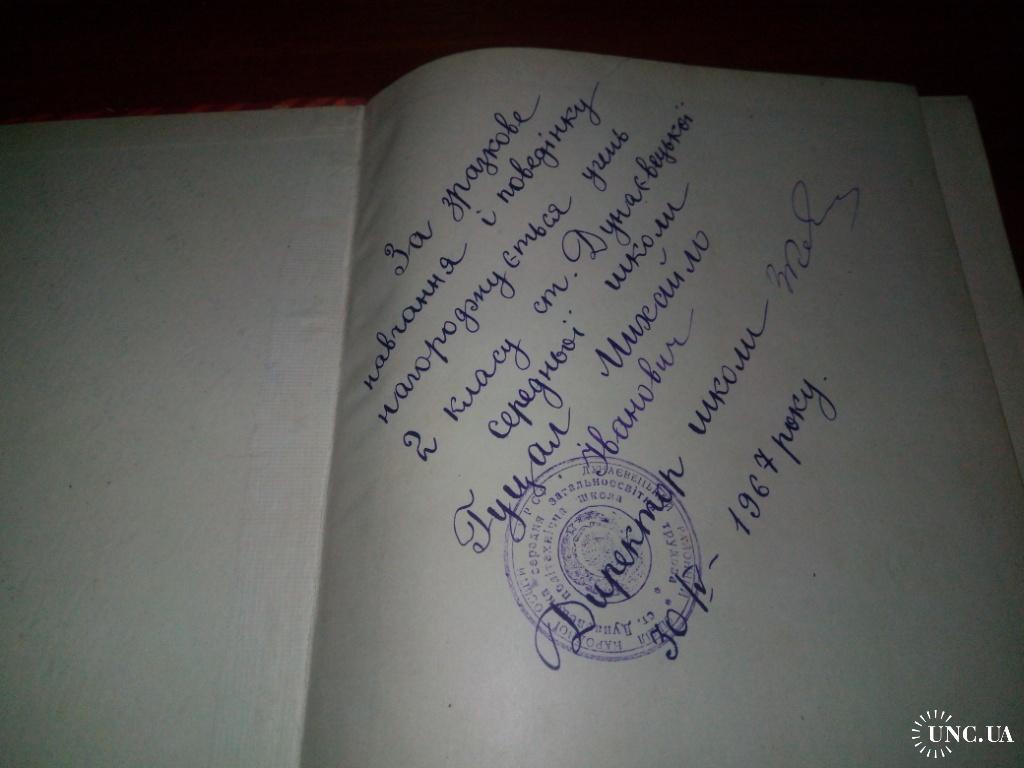 За зразкове
навчання і поведінку
нагороджується учень
2 класу ст. Дунаєвецької
середньої школи
Гуцал Михайло
Іванович
Директор школи
30 V 1967 року.
середня загальноосвітн
політехнічна школа
ст. Дунаїв
UNC.UA